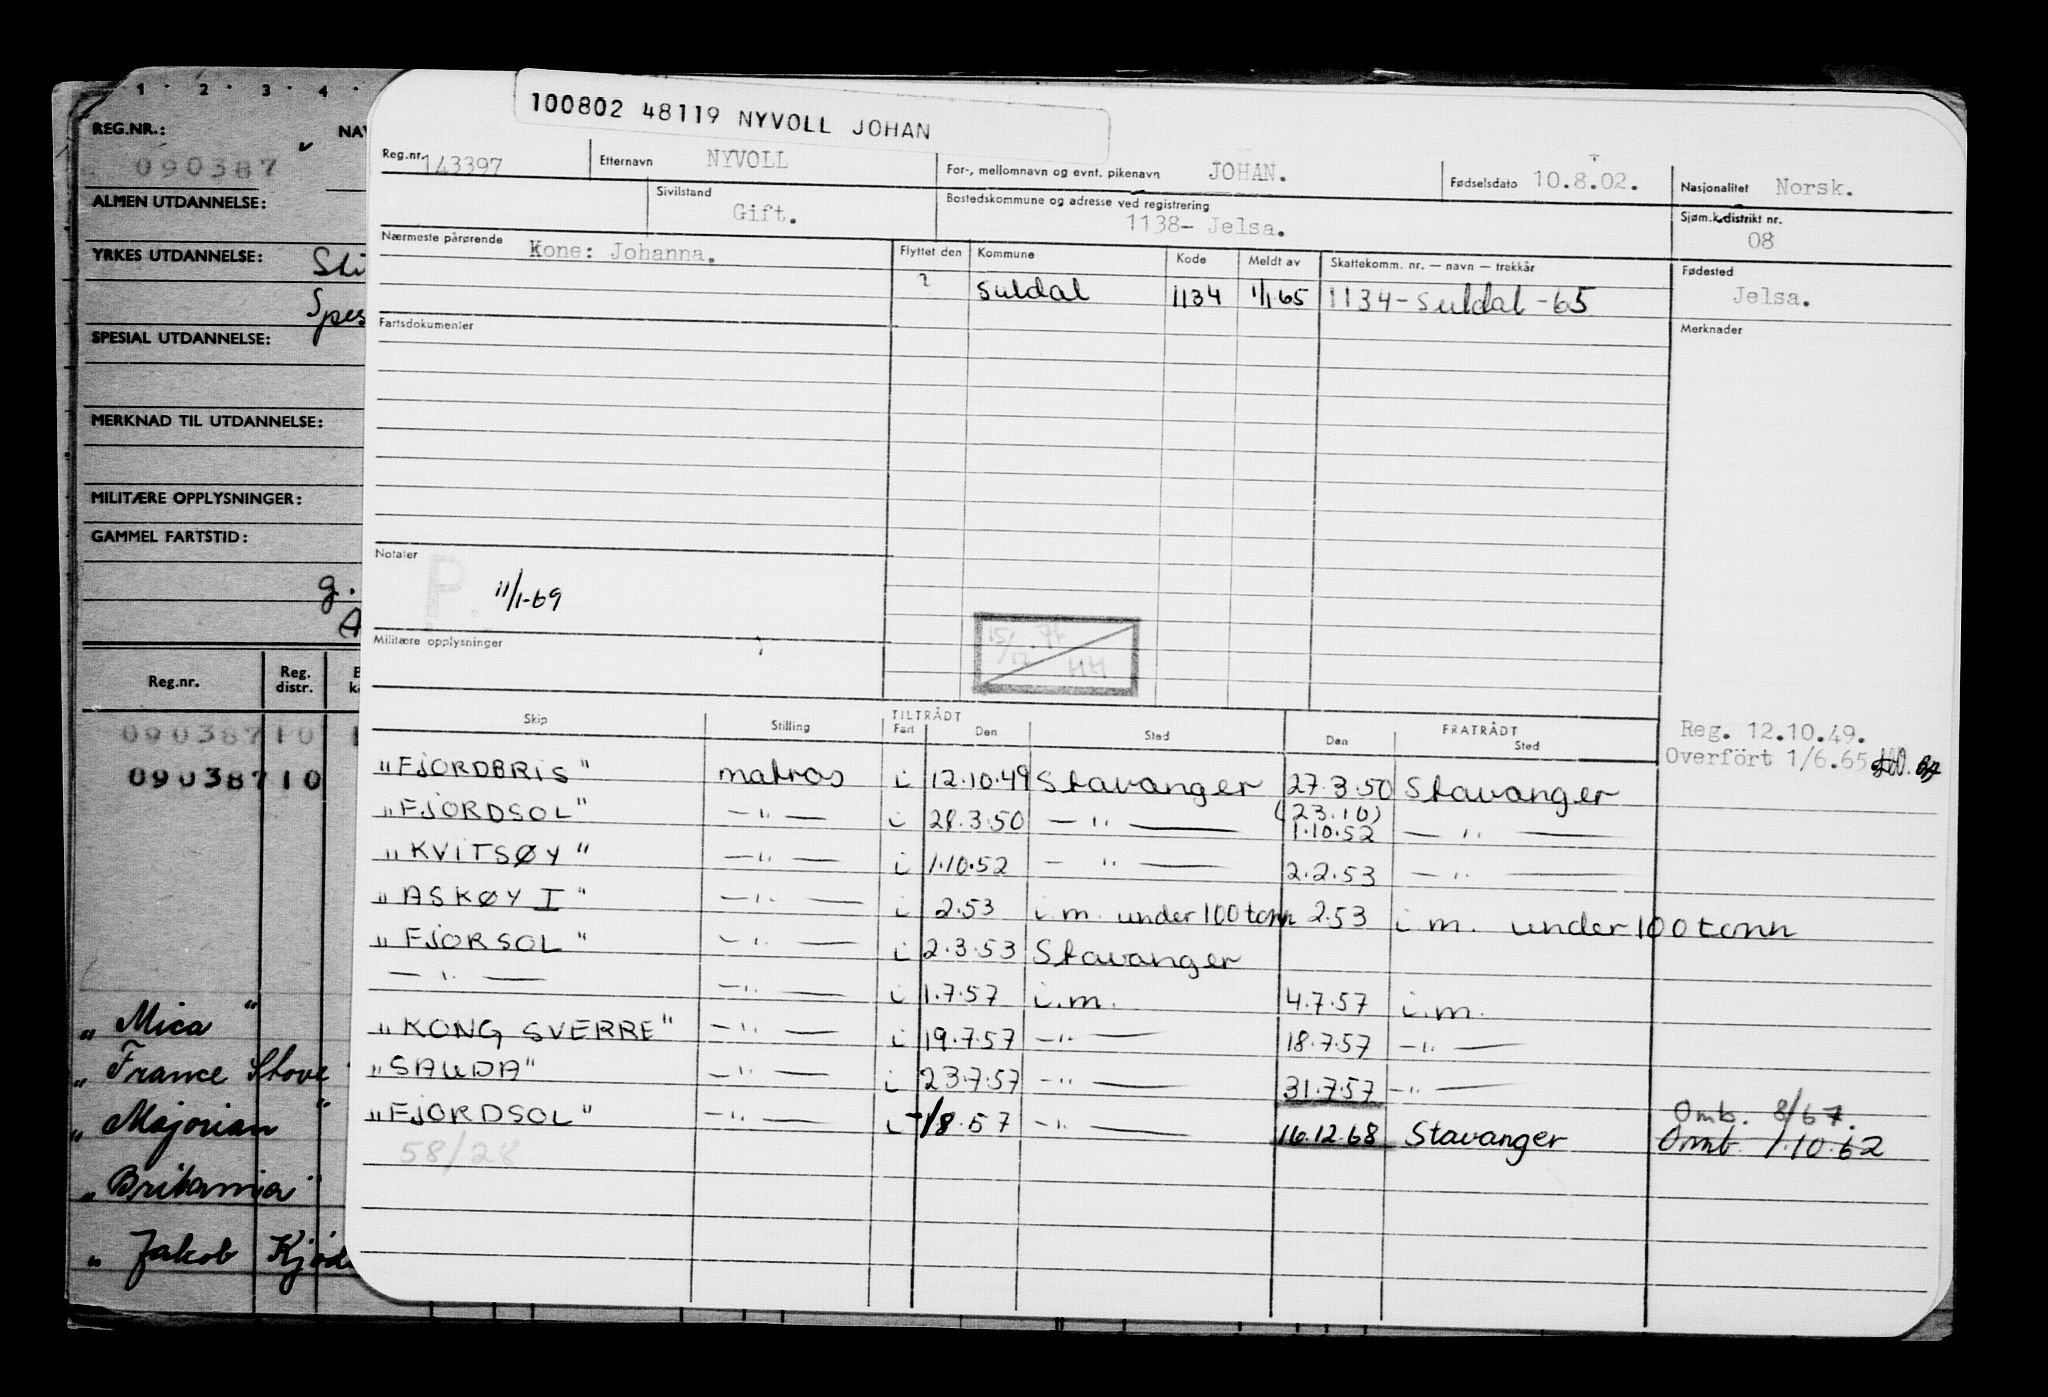 1 · 2 · 3 · 4 ·
REG.NR.:
090387
ALMEN UTDANNELSE:
YRKES UTDANNELSE:
SPESIAL UTDANNELSE:
MERKNAD TIL UTDANNELSE:
MILITÆRE OPPLYSNINGER:
GAMMEL FARTSTID:
g.
Reg.nr. Reg. distr.
09038710
09038710
„ Mica "
„ France Stove
„ Majorian "
„ Britannia "
„ Jakob Kjøde
100802 48119 NYVOLL JOHAN
Reg.nr. 143397 Etternavn NYVOLL For-, mellomnavn og evnt. pikenavn JOHAN. Fødselsdato 10.8.02. Nasjonalitet Norsk.
Sivilstand Gift. Bostedskommune og adresse ved registrering 1138- Jelsa. Sjøm.k.distrikt nr. 08
Nærmeste pårørende Kone: Johanna. Flyttet den Kommune Kode Meldt av Skattekomm. nr. — navn — trekkår Fødested Jelsa.
? Suldal 1134 1/1 65 1134-Suldal-65
Fartsdokumenter Merknader
Notater
P. 11/1-69
Militære opplysninger
15/12.77 HH
Skip Stilling TILTRÅDT Fart Den Sted FRATRÅDT Den Sted
Reg. 12.10.49.
Overført 1/6.65
"FJORDBRIS" matros i 12.10.49 Stavanger 27.3.50 Stavanger
"FJORDSOL" —"— i 28.3.50 —"— (23.10) 1.10.52 —"—
"KVITSØY" —"— i 1.10.52 —"— 2.2.53 —"—
"ASKØY I" —"— i 2.53 i.m. under 100 tonn 2.53 i.m. under 100 tonn
"FJORSOL" —"— i 2.3.53 Stavanger
—"— —"— i 1.7.57 i.m. 4.7.57 i.m.
"KONG SVERRE" —"— i 19.7.57 —"— 18.7.57 —"—
"SAUDA" —"— i 23.7.57 —"— 31.7.57 —"—
Omb. 8/67.
"FJORDSOL" —"— i 1/8.57 —"— 16.12.68 Stavanger Omb. 1.10.62
58/28